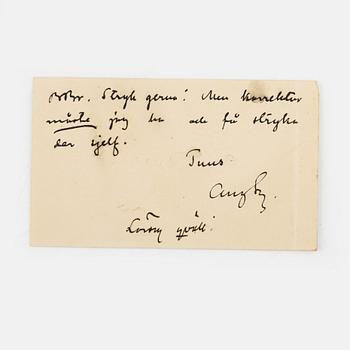 BrBr. Stryk gerna! Men korrektur
måste jag ha och få stryka
der sjelf.
Tuus
Aug Sg.
Lördag qväll.